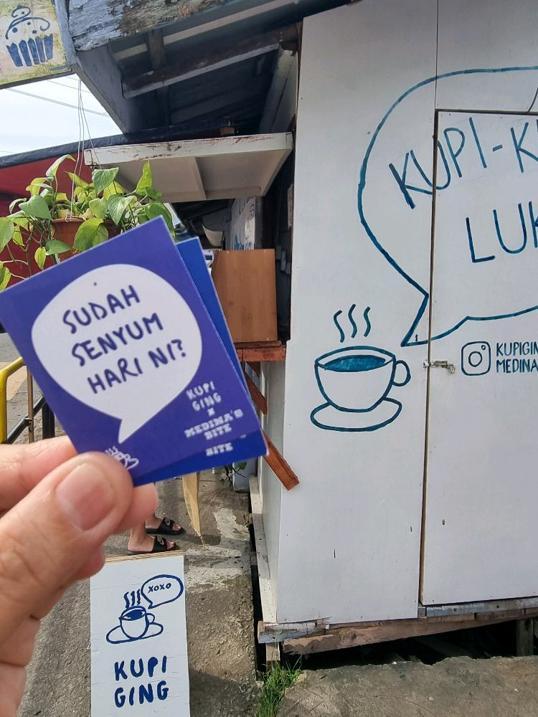 SUDAH
SENYUM
HARI NI?
KUPI
GING
X
MEDINA'S
BITE
BITE
KUPI-K
LUK
KUPIGIN
MEDINA
XOXO
KUPI
GING